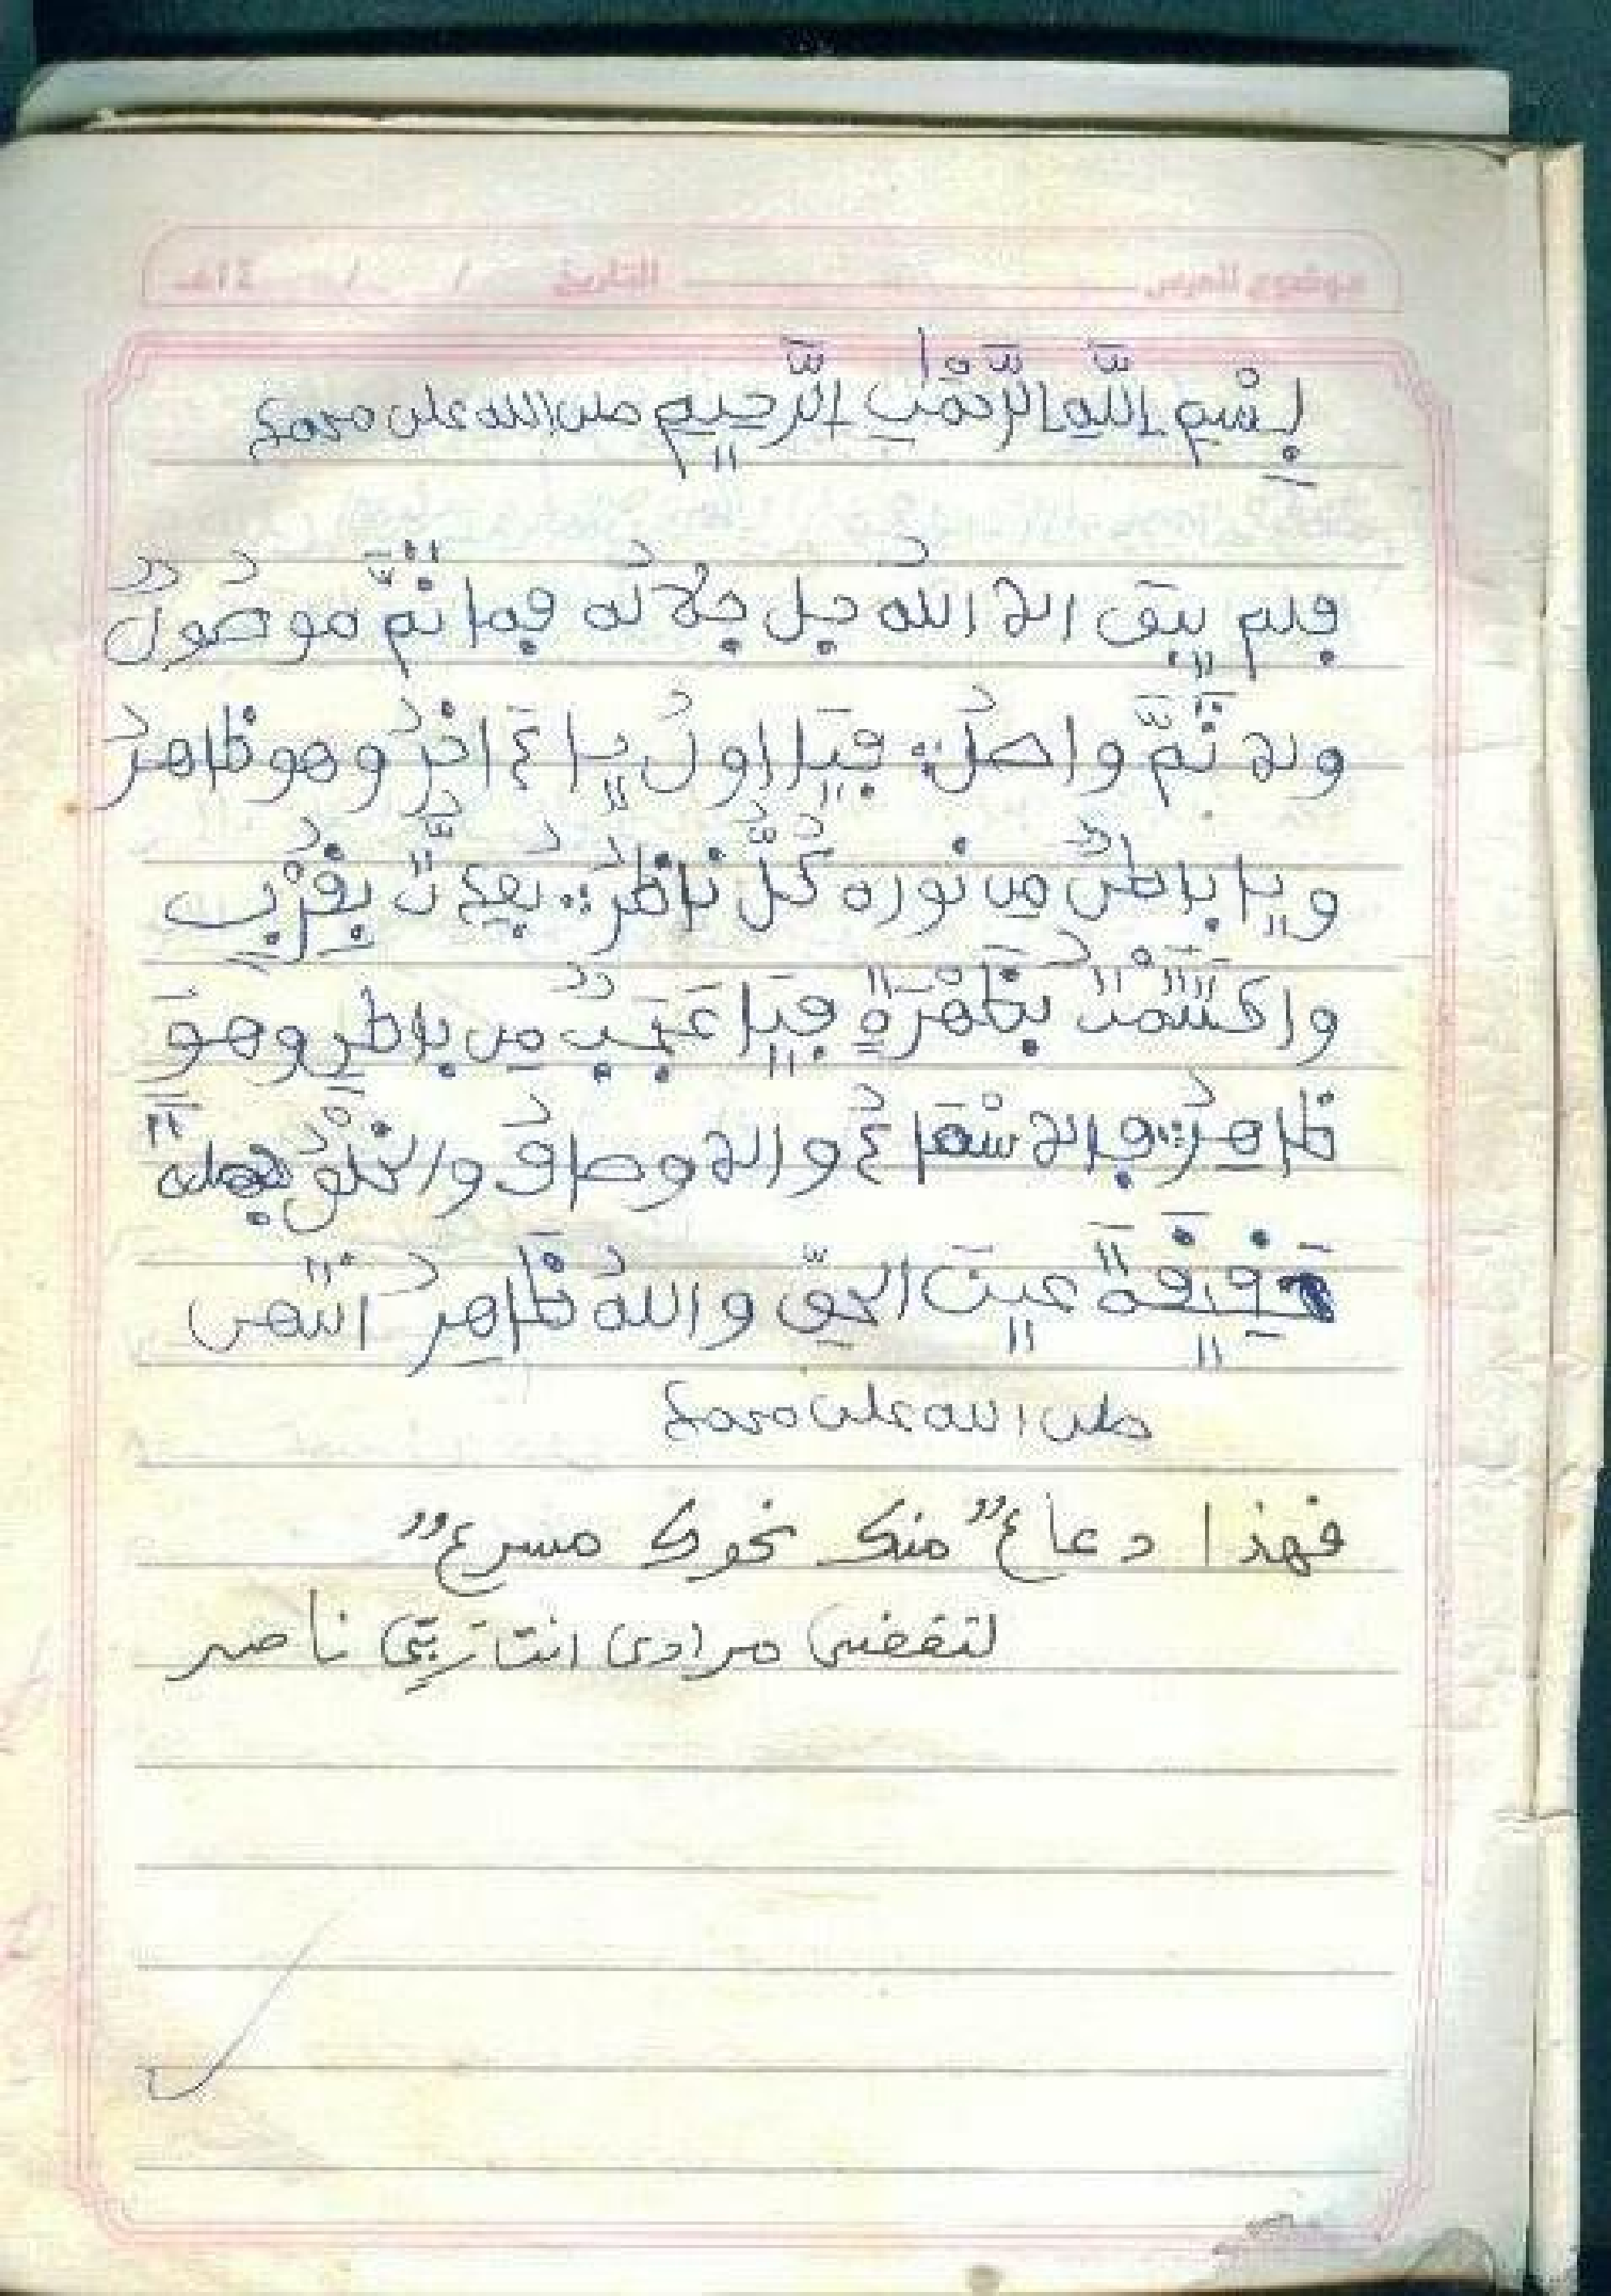 موضوع الدرس التاريخ / / ١٤هـ
بِسْمِ اللَّهِ الرَّحْمٰنِ الرَّحِيمِ صلى الله على محمدع
فلم يبق الا الله جل جلالُه فما ثَمَّ موصُولٌ
ولا ثَمَّ واصلُ فيَا اولُ يا ءَ اخرُ وهو ظاهرُ
ويا باطنٌ من نوره كُلُّ ناظرُ بعدتَّ بقُرْب
واكتتمْتَ بظَهْرَةٍ فيَا عَجَبٌ مِن باطنٍ وهوَ
ظاهِرُ فالاسْمَاءُ والاوصافُ والخلْقُ جملة
حَقِيقَةً عينَ الحقّ واللهُ ظَاهِرُ انتهى
صلى الله على محمدع
فهذا دعاءٌ منك نحوك مسرعٌ
لتقضى مرادى انت رَبِّى ناصر